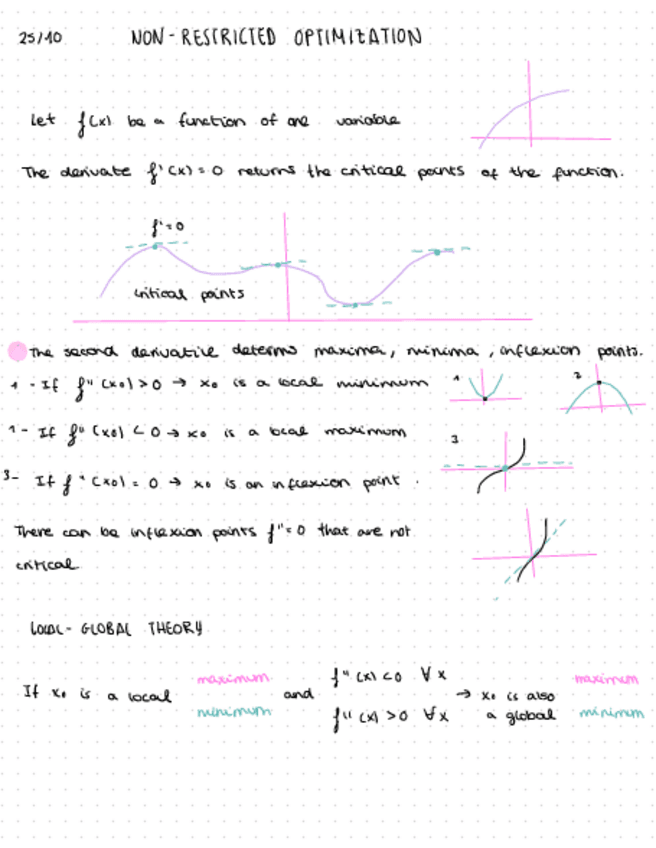 25/10 NON-RESTRICTED OPTIMIZATION
Let f(x) be a function of one variable
The derivate f'(x)=0 returns the critical points of the function.
f'=0
critical points
The second derivative determs maxima, minima, inflexion points.
1 - If f''(x0)>0 → x0 is a local minimum
1 2
1 - If f''(x0)<0 → x0 is a local maximum
3.
3- If f''(x0)=0 → x0 is an inflexion point.
There can be inflexion points f''=0 that are not
critical
LOCAL-GLOBAL THEORY
If x0 is a local maximum minimum and f''(x)<0 ∀x f''(x)>0 ∀x → x0 is also a global maximum minimum